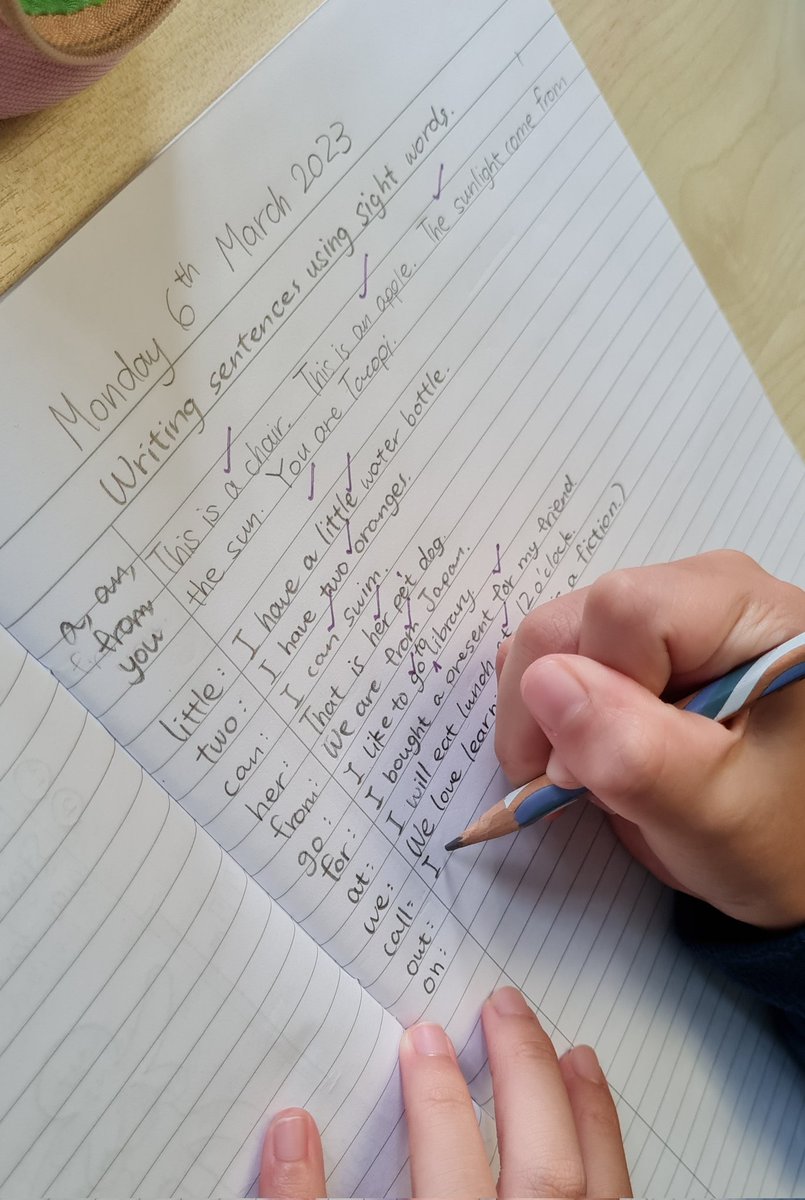 Monday 6th March 2023
Writing sentences using sight words.
a, an, This is a chair. This is an apple. The sunlight come from
from, the sun. You are Tacopi.
you
little: I have a little water bottle.
two: I have two oranges.
can: I can swim.
her: That is her pet dog
from: We are from Japan.
go: I like to go to library.
for: I bought a present for my friend.
at: I will eat lunch at 12 o'clock.
we: We love is a fiction.)
call: I
out:
on: